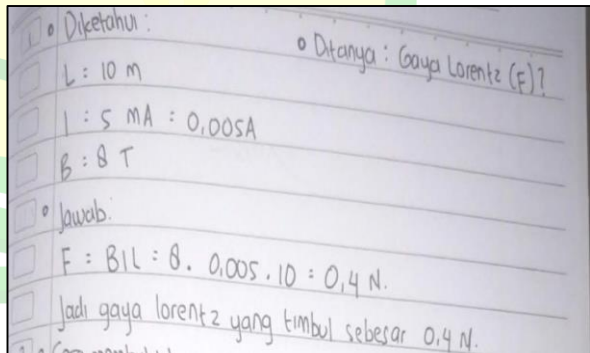 1 • Diketahui :
• Ditanya : Gaya Lorentz (F)?
L : 10 m
I : 5 MA : 0,005A
B : 8 T
• Jawab:
F : BIL : 8. 0,005 . 10 : 0,4 N.
Jadi gaya lorentz yang timbul sebesar 0,4 N.